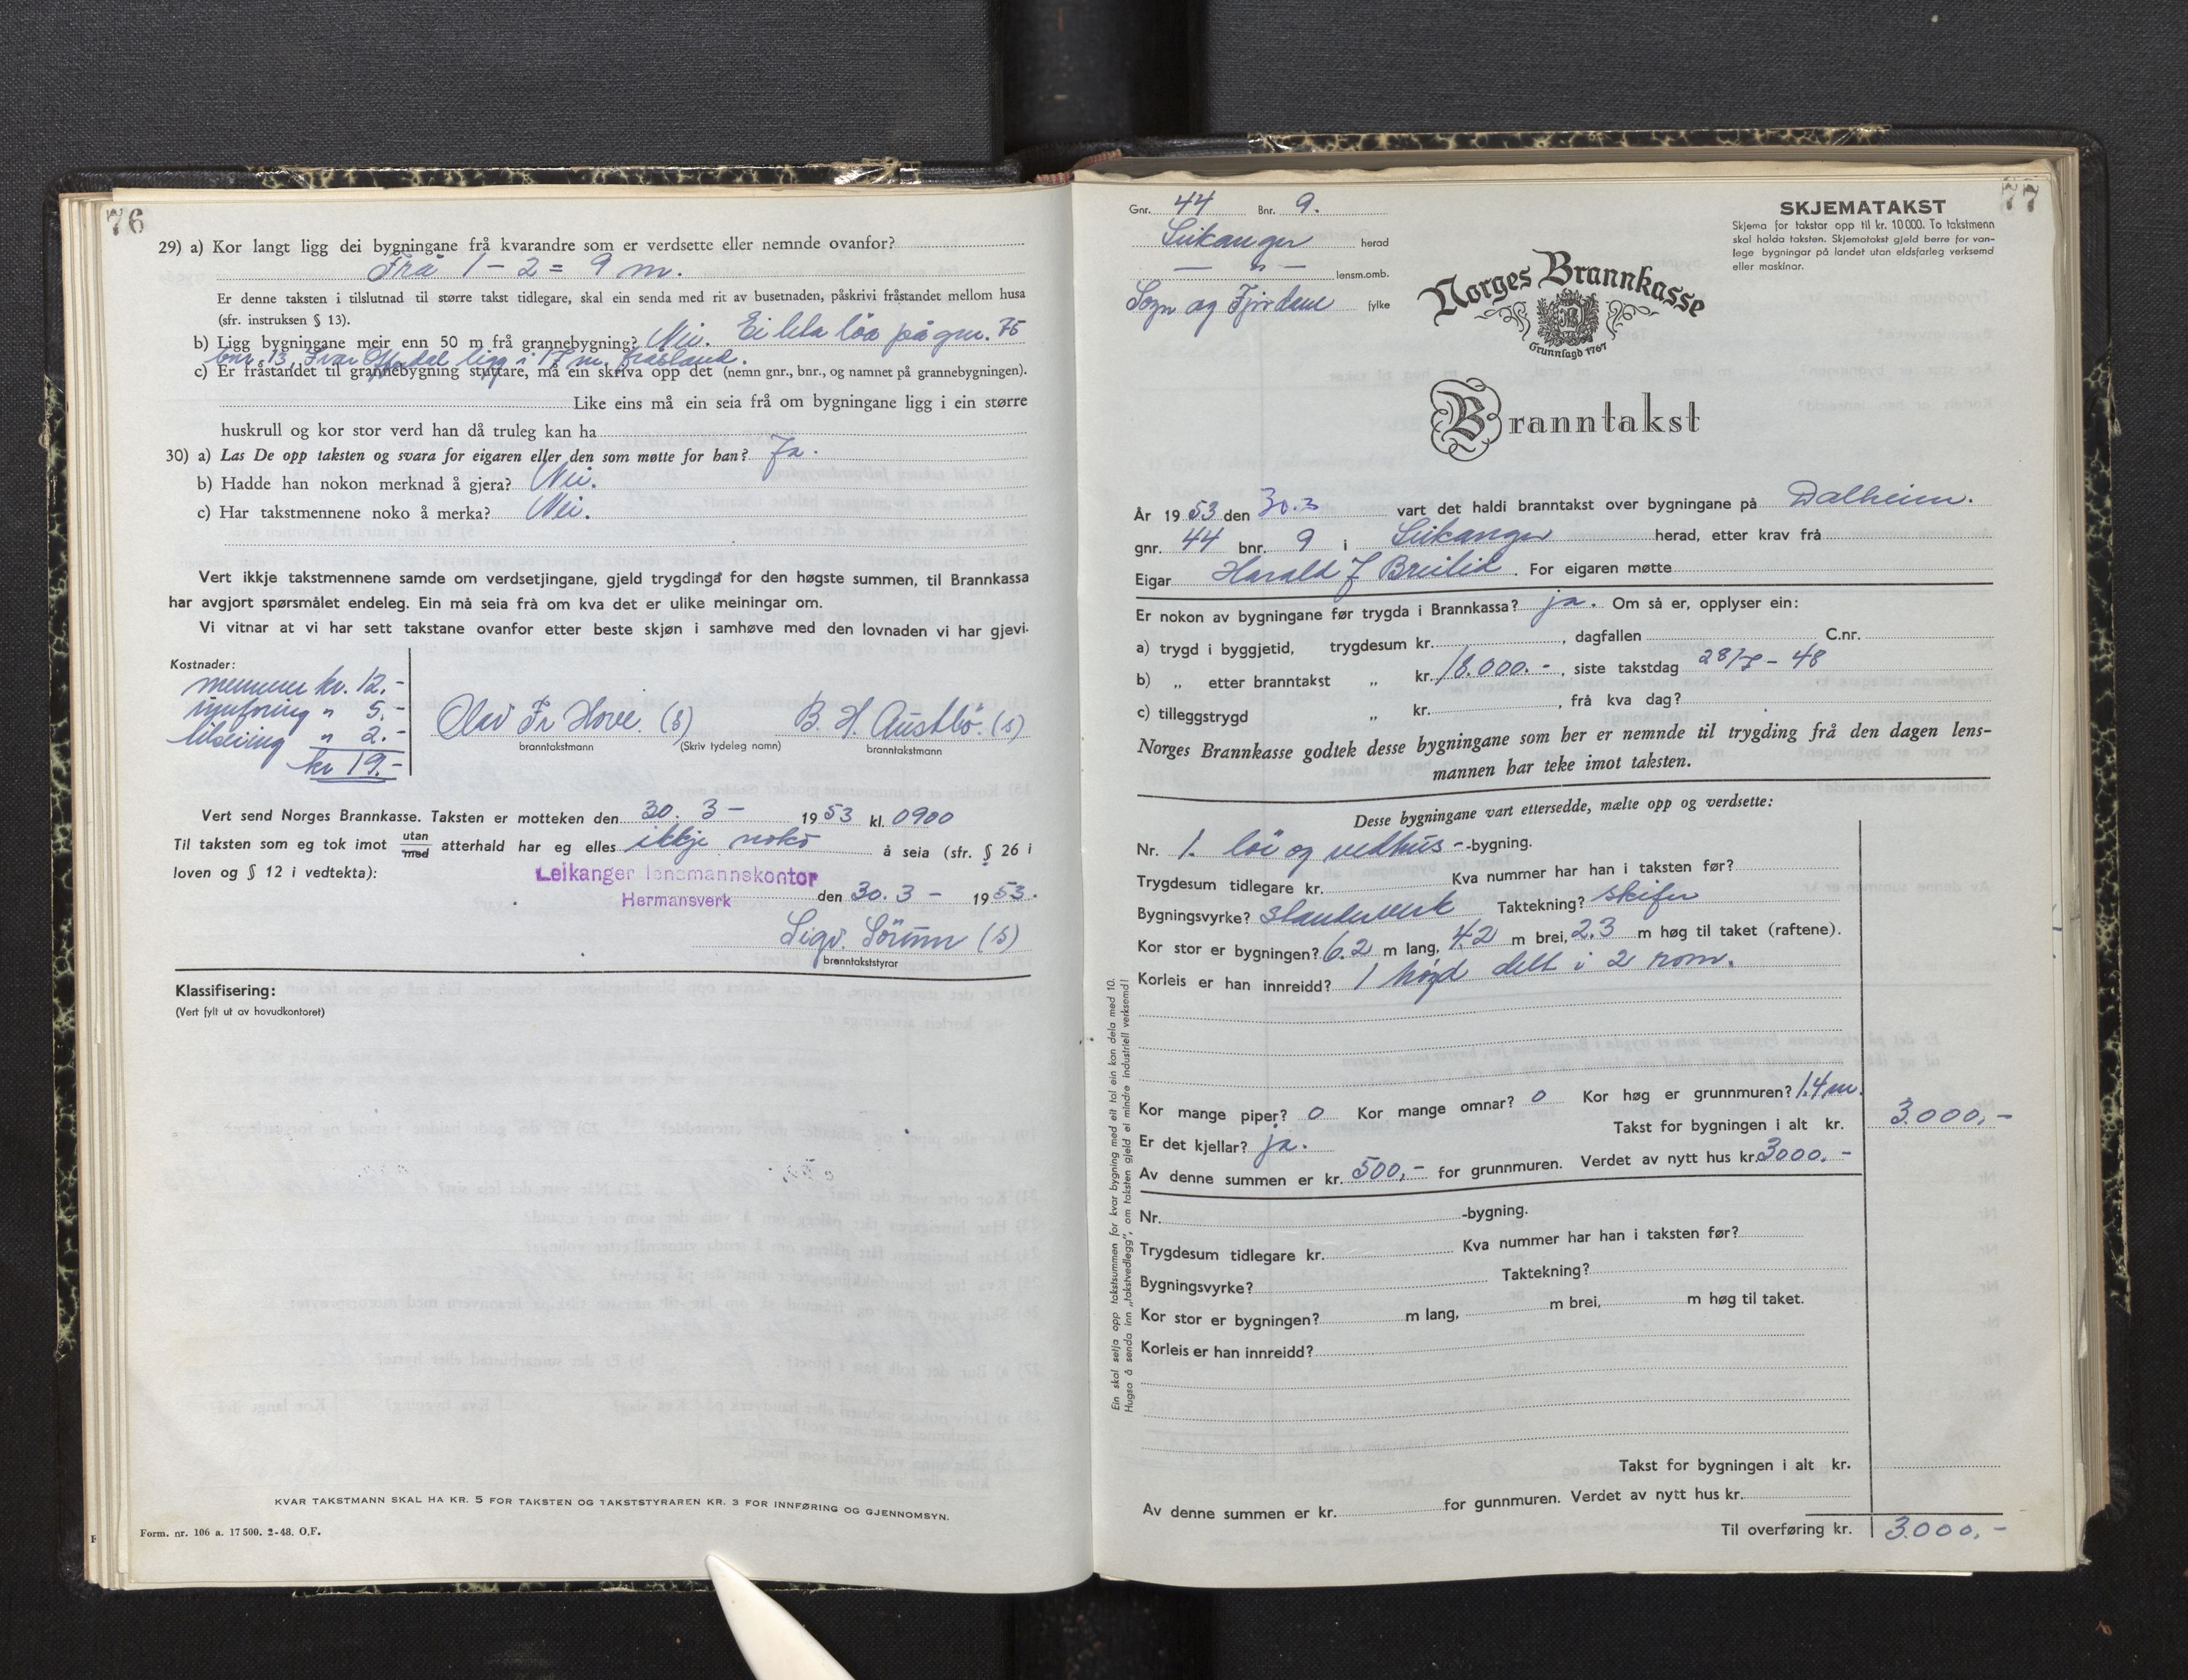 76
29) a) Kor langt ligg dei bygningane frå kvarandre som er verdsette eller nemnde ovanfor?
Frå 1 – 2 = 9 m.
Er denne taksten i tilslutnad til større takst tidlegare, skal ein senda med rit av busetnaden, påskrivi fråstandet mellom husa
(sfr. instruksen § 13).
b) Ligg bygningane meir enn 50 m frå grannebygning? Nei. Ei lita löa på gnr. 75
bnr. 13, Ivar ligg i 17 m. fråstand.
c) Er fråstandet til grannebygning stuttare, må ein skriva opp det (nemn gnr., bnr., og namnet på grannebygningen).
Like eins må ein seia frå om bygningane ligg i ein større
huskrull og kor stor verd han då truleg kan ha
30) a) Las De opp taksten og svara for eigaren eller den som møtte for han? Ja.
b) Hadde han nokon merknad å gjera? Nei.
c) Har takstmennene noko å merka? Nei.
Vert ikkje takstmennene samde om verdsetjingane, gjeld trygdinga for den høgste summen, til Brannkassa
har avgjort spørsmålet endeleg. Ein må seia frå om kva det er ulike meiningar om.
Vi vitnar at vi har sett takstane ovanfor etter beste skjøn i samhøve med den lovnaden vi har gjevi.
Kostnader:
mennene kr. 12.-
innföring " 5.-
" 2.-
kr 19.-
Olav Fr Hove. (s) B. H. Austbö. (s)
branntakstmann (Skriv tydeleg namn) branntakstmann
Vert send Norges Brannkasse. Taksten er motteken den 30. 3 – 1953 kl. 0900
Til taksten som eg tok imot utan/med atterhald har eg elles ikkje noko å seia (sfr. § 26 i
loven og § 12 i vedtekta):
Leikanger lensmannskontor
Hermansverk den 30. 3 – 1953.
Sigv. (s)
brenntakststyrar
Klassifisering:
(Vert fylt ut av hovudkontoret)
KVAR TAKSTMANN SKAL HA KR. 5 FOR TAKSTEN OG TAKSTSTYRAREN KR. 3 FOR INNFØRING OG GJENNOMSYN.
Form. nr. 106 a. 17 500. 2-48. O.F.
77
Gnr. 44 Bnr. 9.
Leikanger herad
— " — lensm.omb.
Sogn og Fjordane fylke
SKJEMATAKST
Skjema for takstar opp til kr. 10 000. To takstmenn
skal halda taksten. Skjematakst gjeld berre for van-
lege bygningar på landet utan eldsfarleg verksemd
eller maskinar.
Norges Brannkasse
Grunnlagd 1767
Branntakst
År 1953 den 30.3 vart det haldi branntakst over bygningane på Dalheim.
gnr. 44 bnr. 9 i Leikanger herad, etter krav frå
Eigar Harald J Breilid. For eigaren møtte
Er nokon av bygningane før trygda i Brannkassa? ja. Om så er, opplyser ein:
a) trygd i byggjetid, trygdesum kr. , dagfallen C.nr.
b) „ etter branntakst „ kr. 18.000.-, siste takstdag 28/7 – 48
c) tilleggstrygd „ kr. , frå kva dag?
Norges Brannkasse godtek desse bygningane som her er nemnde til trygding frå den dagen lens-
mannen har teke imot taksten.
Desse bygningane vart ettersedde, mælte opp og verdsette:
Nr. 1. löe og vedhus - -bygning.
Trygdesum tidlegare kr. Kva nummer har han i taksten før?
Bygningsvyrke? Standerverk Taktekning? skifer
Kor stor er bygningen? 6.2 m lang, 4.2 m brei, 2.3 m høg til taket (raftene).
Korleis er han innreidd? 1 högd delt i 2 rom.
Kor mange piper? 0 Kor mange omnar? 0 Kor høg er grunnmuren? 1.4 m.
Er det kjellar? ja. Takst for bygningen i alt kr. 3.000,-
Av denne summen er kr. 500,- for grunnmuren. Verdet av nytt hus kr. 3000.-
Nr. -bygning.
Trygdesum tidlegare kr. Kva nummer har han i taksten før?
Bygningsvyrke? Taktekning?
Kor stor er bygningen? m lang, m brei, m høg til taket.
Korleis er han innreidd?
Takst for bygningen i alt kr.
Av denne summen er kr. for gunnmuren. Verdet av nytt hus kr.
Til overføring kr. 3.000,-
Ein skal setja opp takstsummen for kvar bygning med eit tal ein kan dela med 10.
Hugsa å senda inn „takstvedlegg", om taksten gjeld ei mindre industriell verksemd!